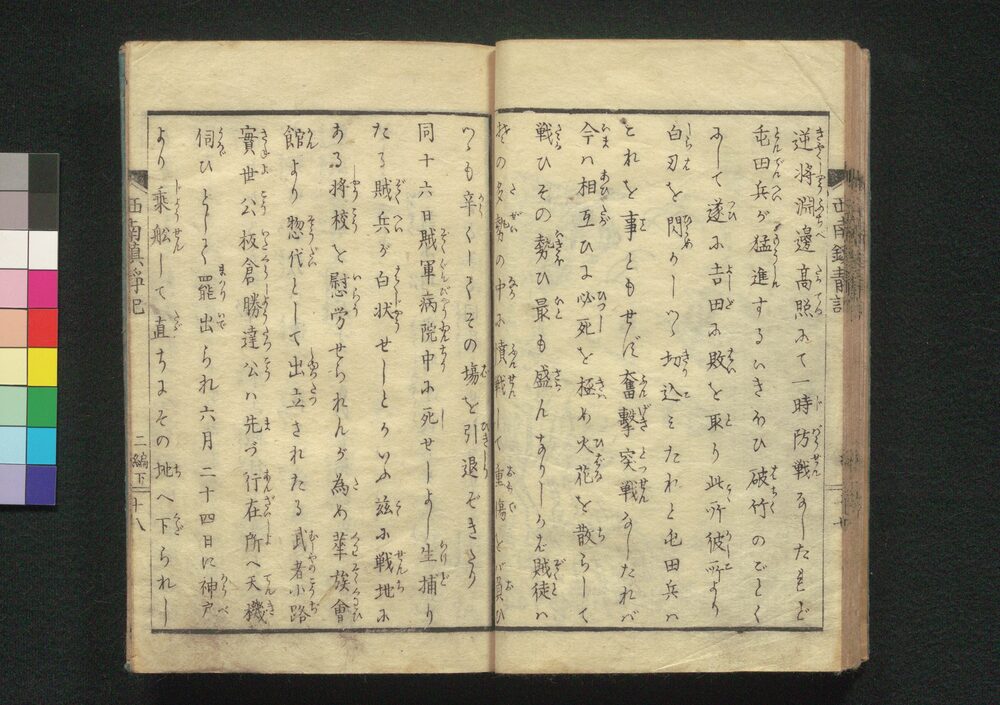 逆将淵邊高照にて一時防戦なしたれど
屯田兵が猛進するいきおひ破竹のごとく
にして遂に吉田に敗を取り此所彼所より
白刃を閃かしつゝ切込をたれと屯田兵ハ
とれを事ともせず奮撃突戦なしたれバ
今ハ相互ひに必死を極め火花を散らして
戦ひその勢ひ最も盛んなりしかど賊徒ハ
その多勢の中に憤戦して重傷をバ負ひ
つゝも辛くしてその場を引退ぞきたり
同十六日賊軍病院中に死せしよし生捕り
たる賊兵が白状せしとかいふ茲に戦地に
ある将校を慰労せられんが為め華族會
館より惣代として出立されたる武者小路
實世公板倉勝達公ハ先づ行在所へ天機
伺ひとして罷出られ六月二十四日に神戸
より乗舩して直ちにその地へ下られし
西南鎮静記
二編下
十八